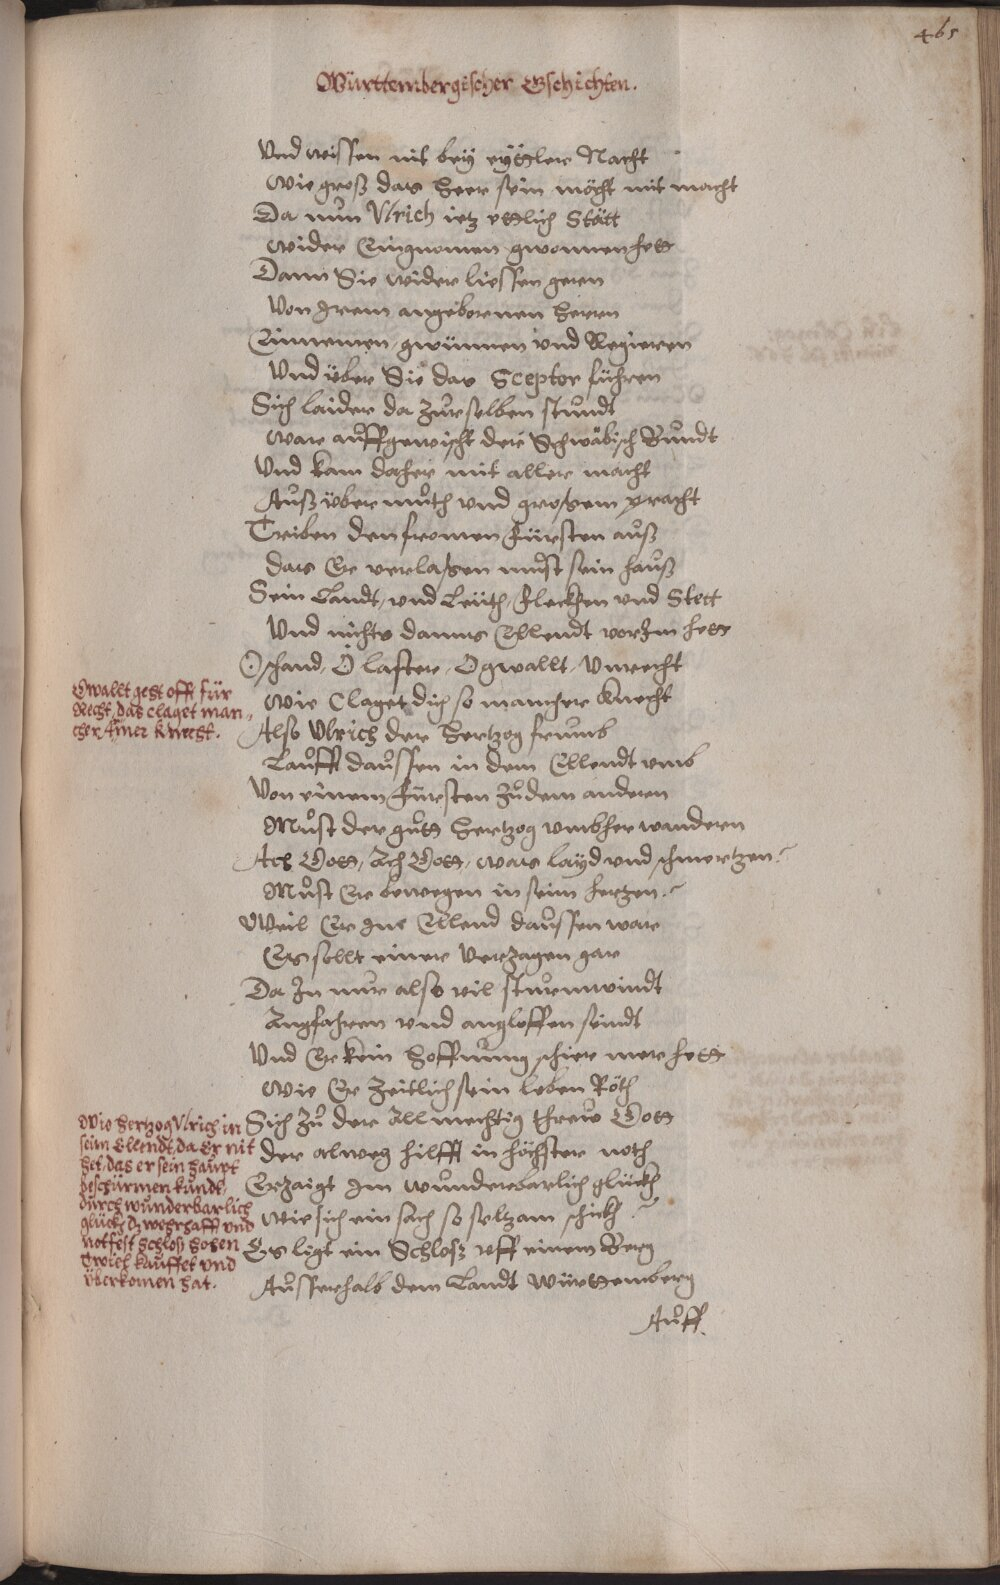 465
Württembergischer Gschichten.
Und wissen nit bey eytler Nacht
Wie groß das Heer sein möcht mit macht
Da nun Ulrich jetz ettlich Stätt
Wider Eingnomen gwonnen hett
Dann Sie wider liessen geren
Von Irem angebornen Herren
Einnemen, gwünnen und Regieren
Und über Sie das Scepter führen
Sich laider da zur selben stundt
War auffgewischt der Schwäbisch Bundt
Und kam daher mit aller macht
Auß übermuth und großem pracht
Triben den fromen Fürsten auß
Das Er verlaßen must sein hauß
Sein Landt, und Leüth, Flecken und Stett
Und nichts danns Ellendt vor Im hett
O schand, O laster, O gwallt, Unrecht
Wie Claget dich so mancher Knecht
Gwallt geht offt für
Recht, das claget man-
cher Armer Knecht.
Also Ulrich der Hertzog frumb
Laufft daussen in dem Ellendt umb
Von einem Fürsten zu dem anderen
Must der gutt Hertzog umbher wanderen
Ach Gott, Ach Gott, was layd und schmertzen?
Must Er bewegen in seim hertzen?
Weil Er Inn Ellend daussen ware
Es sollt einer Verzagen gar
Da In nur also vil sturmwindt
Angfahren und angloffen seindt
Und Er kein Hoffnung schier mer hett
Wie Er Zeitlich sein leben Rött
Sich zu der Allmechtig threw Gott
Der alweg hilfft in höchster noth
Erzaigt Im wunderbarlich glück
Wie sich ein sach so seltzam schick?
Es ligt ein Schloß uff einem Berg
Ausserhalb dem Landt Württemberg
Wie Hertzog Ulrich in
seim Ellendt, da Er nit
het, das er sein haupt
beschürmen kundt,
durch wunderbarlich
glück dz wehrhafft und
notfest Schloß Hohen
Twiel kauffet und
überkomen hat.
Auff.